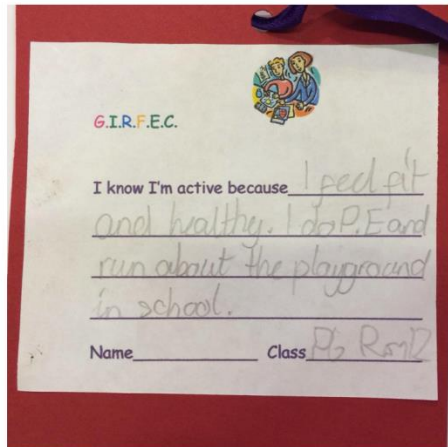 G.I.R.F.E.C.
I know I'm active because I feel fit
and healthy. I do P.E and
run about the playground
in school.
Name Class